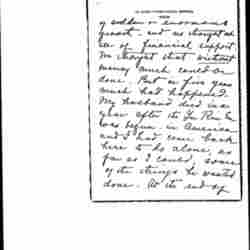 of sudden & enormous
growth, and we thought at
of financial support.
We thought that without
money much could be
done. But in five years
much had happened.
My husband died in a
year after the
was begun in America
and I had come back
here to do alone, as
far as I could, some
of the things he wanted
done. At the end of